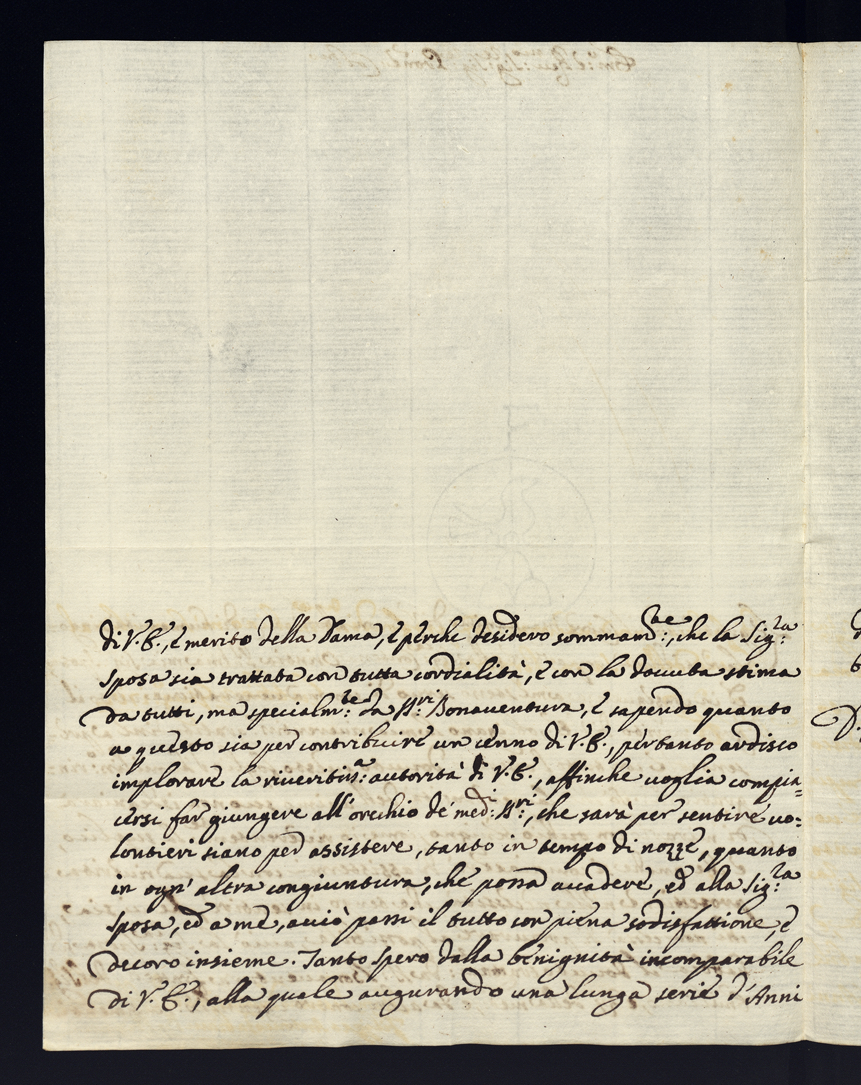 di V. E., e merito della Dama, e perche desidero sommam.te:, che la Sig:ra
sposa sia trattata con tutta cordialità, e con la dovuta stima
da tutti, ma specialm:te da SS:ri Bonaventura, e sapendo quanto
a questo sia per contribuire un cenno di V. E., pertanto ardisco
implorare la riveritis:a autorità di V. E., affinche voglia compia=
cersi far giungere all'orechio de' med:i SS:ri, che sarà per sentire vo=
lontieri siano per assistere, tanto in tempo di nozze, quanto
in ogn' altra congiuntura, che possa accadere, ed alla Sig:ra
sposa, ed a me, acciò passi il tutto con piena sodisfattione, e
decoro insieme. Tanto spero dalla benignità incomparabile
di V. E., alla quale augurando una lunga serie d'Anni